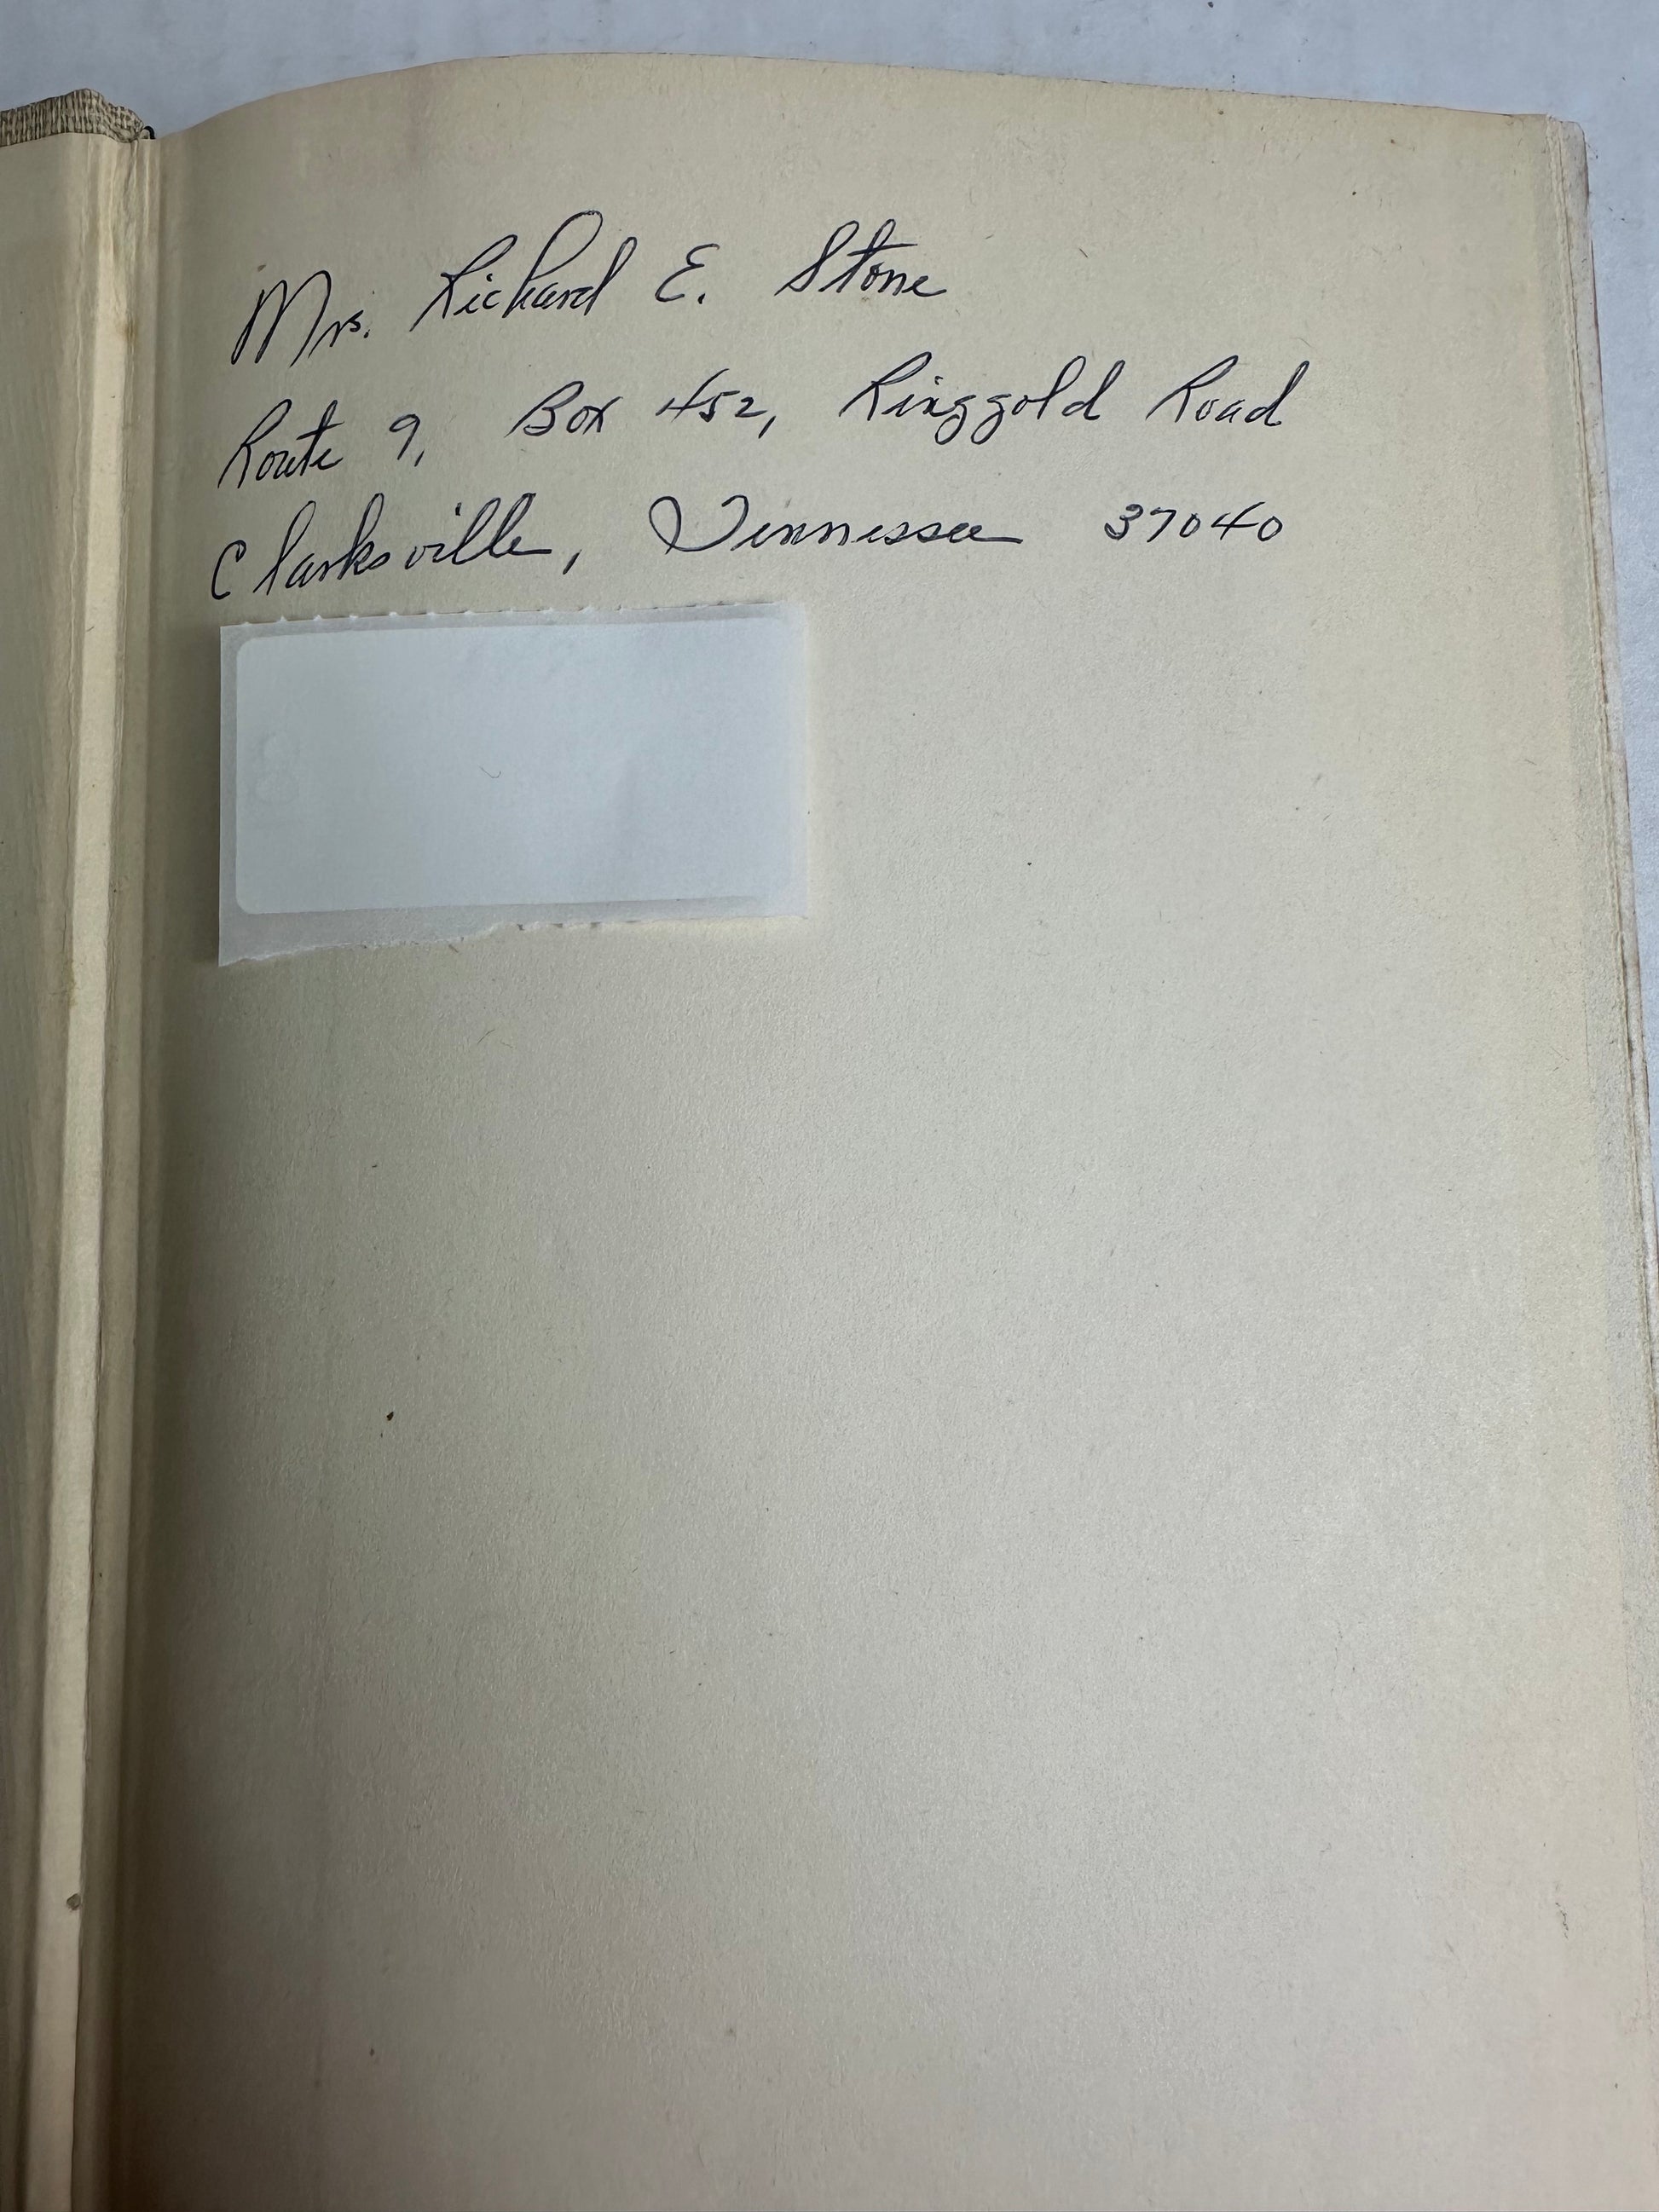 Mrs. Richard E. Stone
Route 9, Box 452, Ringgold Road
Clarksville, Tennessee 37040